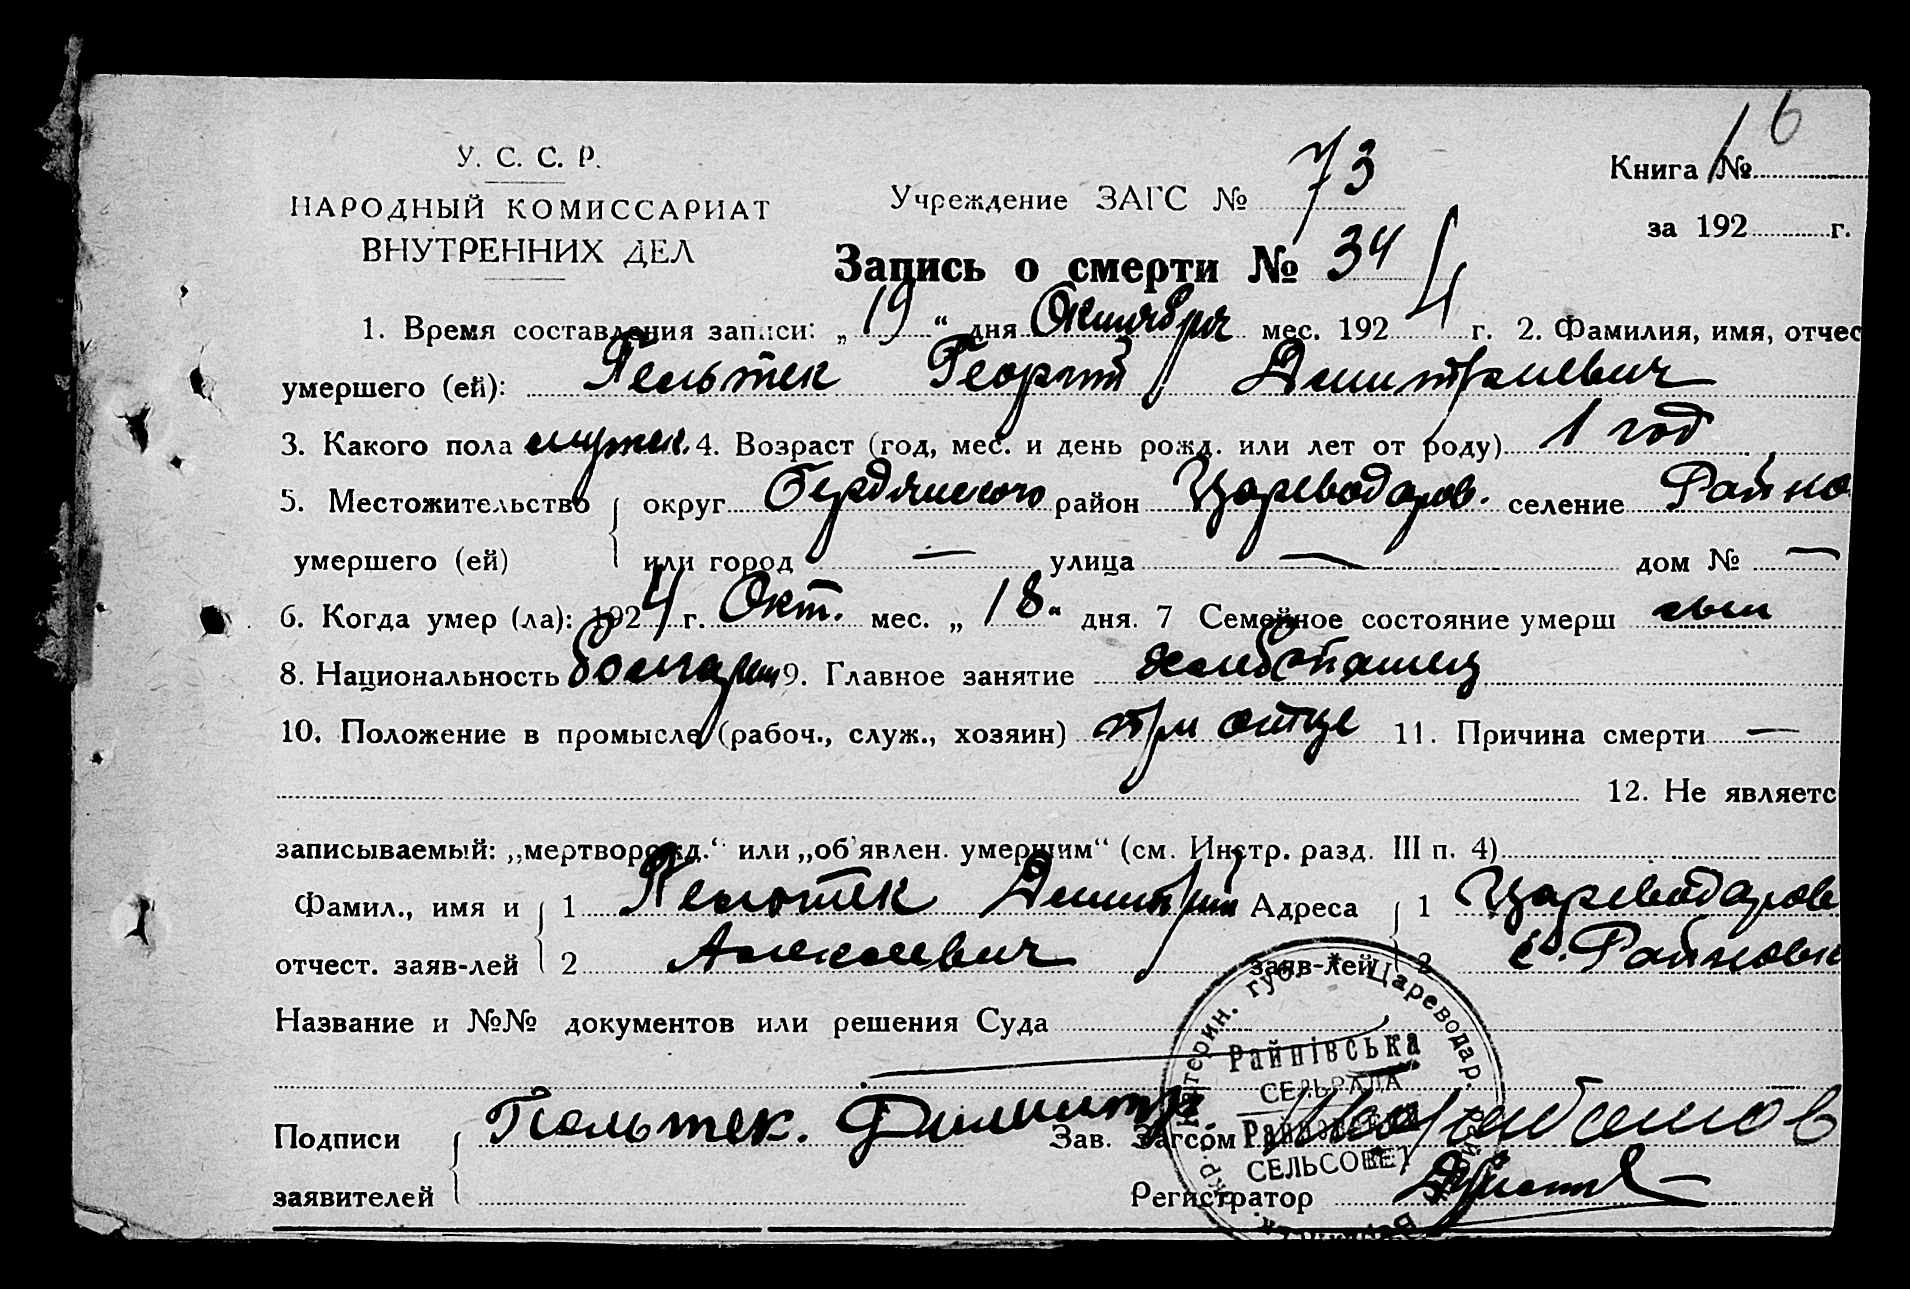 16
У. С. С. Р.
НАРОДНЫЙ КОМИССАРИАТ
ВНУТРЕННИХ ДЕЛ
Учреждение ЗАГС № 73
Книга №
за 192 г.
Запись о смерти № 34
1. Время составления записи: „19“ дня Октября мес. 1924 г. 2. Фамилия, имя, отчес
умершего (ей): Гельтек Георгий Димитриевич
3. Какого пола мужск. 4. Возраст (год, мес. и день рожд. или лет от роду) 1 год
5. Местожительство округ Бердянского район Цареводаров. селение Райно
умершего (ей) или город — улица — дом № —
6. Когда умер (ла): 1924 г. Окт. мес. „18“ дня. 7 Семейное состояние умерш сын
8. Национальность болгарин 9. Главное занятие хлебопашец
10. Положение в промысле (рабоч., служ., хозяин) при отце 11. Причина смерти —
12. Не являетс
записываемый: „мертворожд.“ или „об'явлен. умершим“ (см. Инстр. разд. III п. 4)
Фамил., имя и 1 Гельтек Димитрий Адреса 1 Цареводаров
отчест. заяв-лей 2 Алексеевич заяв-лей 2 с. Райновк
Название и №№ документов или решения Суда
Катерин. губ. * Цареводар.
Райнівська
СЕЛЬРАДА
Райновский
СЕЛЬСОВЕТ
Подписи Гельтек. Димитр. Зав. Загсом
заявителей Регистратор